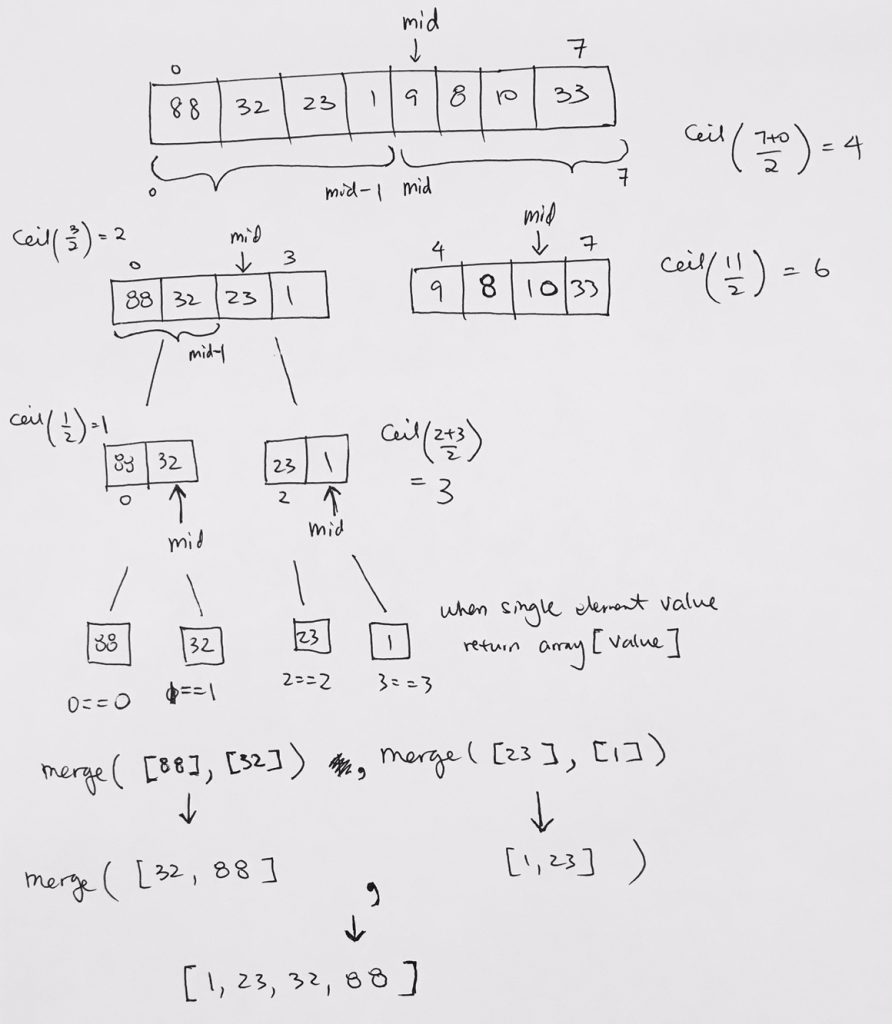 mid
0 7
88 32 23 1 9 8 10 33
Ceil(7+0/2) = 4
0 mid-1 mid 7
Ceil(3/2) = 2
mid
0 3
88 32 23 1
mid-1
mid
4 7
9 8 10 33
Ceil(11/2) = 6
Ceil(1/2) = 1
88 32
0
mid
23 1
2
mid
Ceil(2+3/2)
= 3
88 32 23 1
0==0 1==1 2==2 3==3
when single element value
return array[value]
merge( [88], [32]) , merge( [23], [1])
merge( [32, 88] , [1, 23] )
[1, 23, 32, 88]